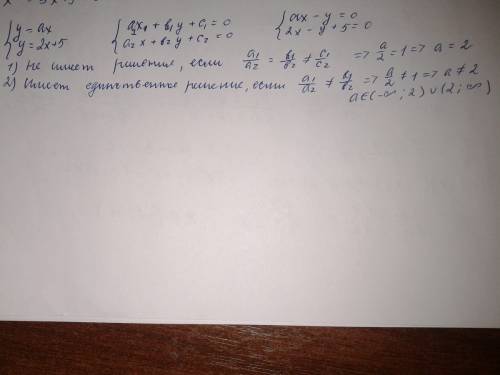 {y = ax   {a₁x + b₁y + c₁ = 0   {ax - y = 0
{y = 2x+5   {a₂x + b₂y + c₂ = 0   {2x - y + 5 = 0
1) Не имеет решения, если a₁/a₂ = b₁/b₂ ≠ c₁/c₂ => a/2 = 1 => a = 2
2) Имеет единственное решение, если a₁/a₂ ≠ b₁/b₂ => a/2 ≠ 1 => a ≠ 2
a∈(-∞; 2) ∪ (2; ∞)